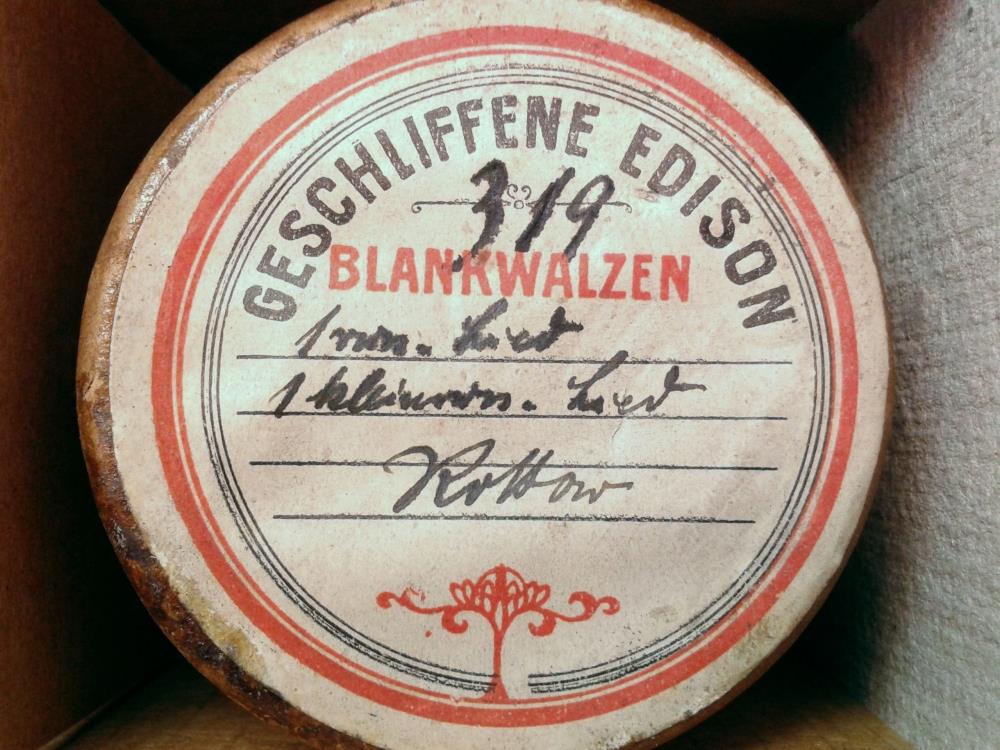 GESCHLIFFENE EDISON
319
BLANKWALZEN
1 russ. Lied
1 kleinruss. Lied
Rottow